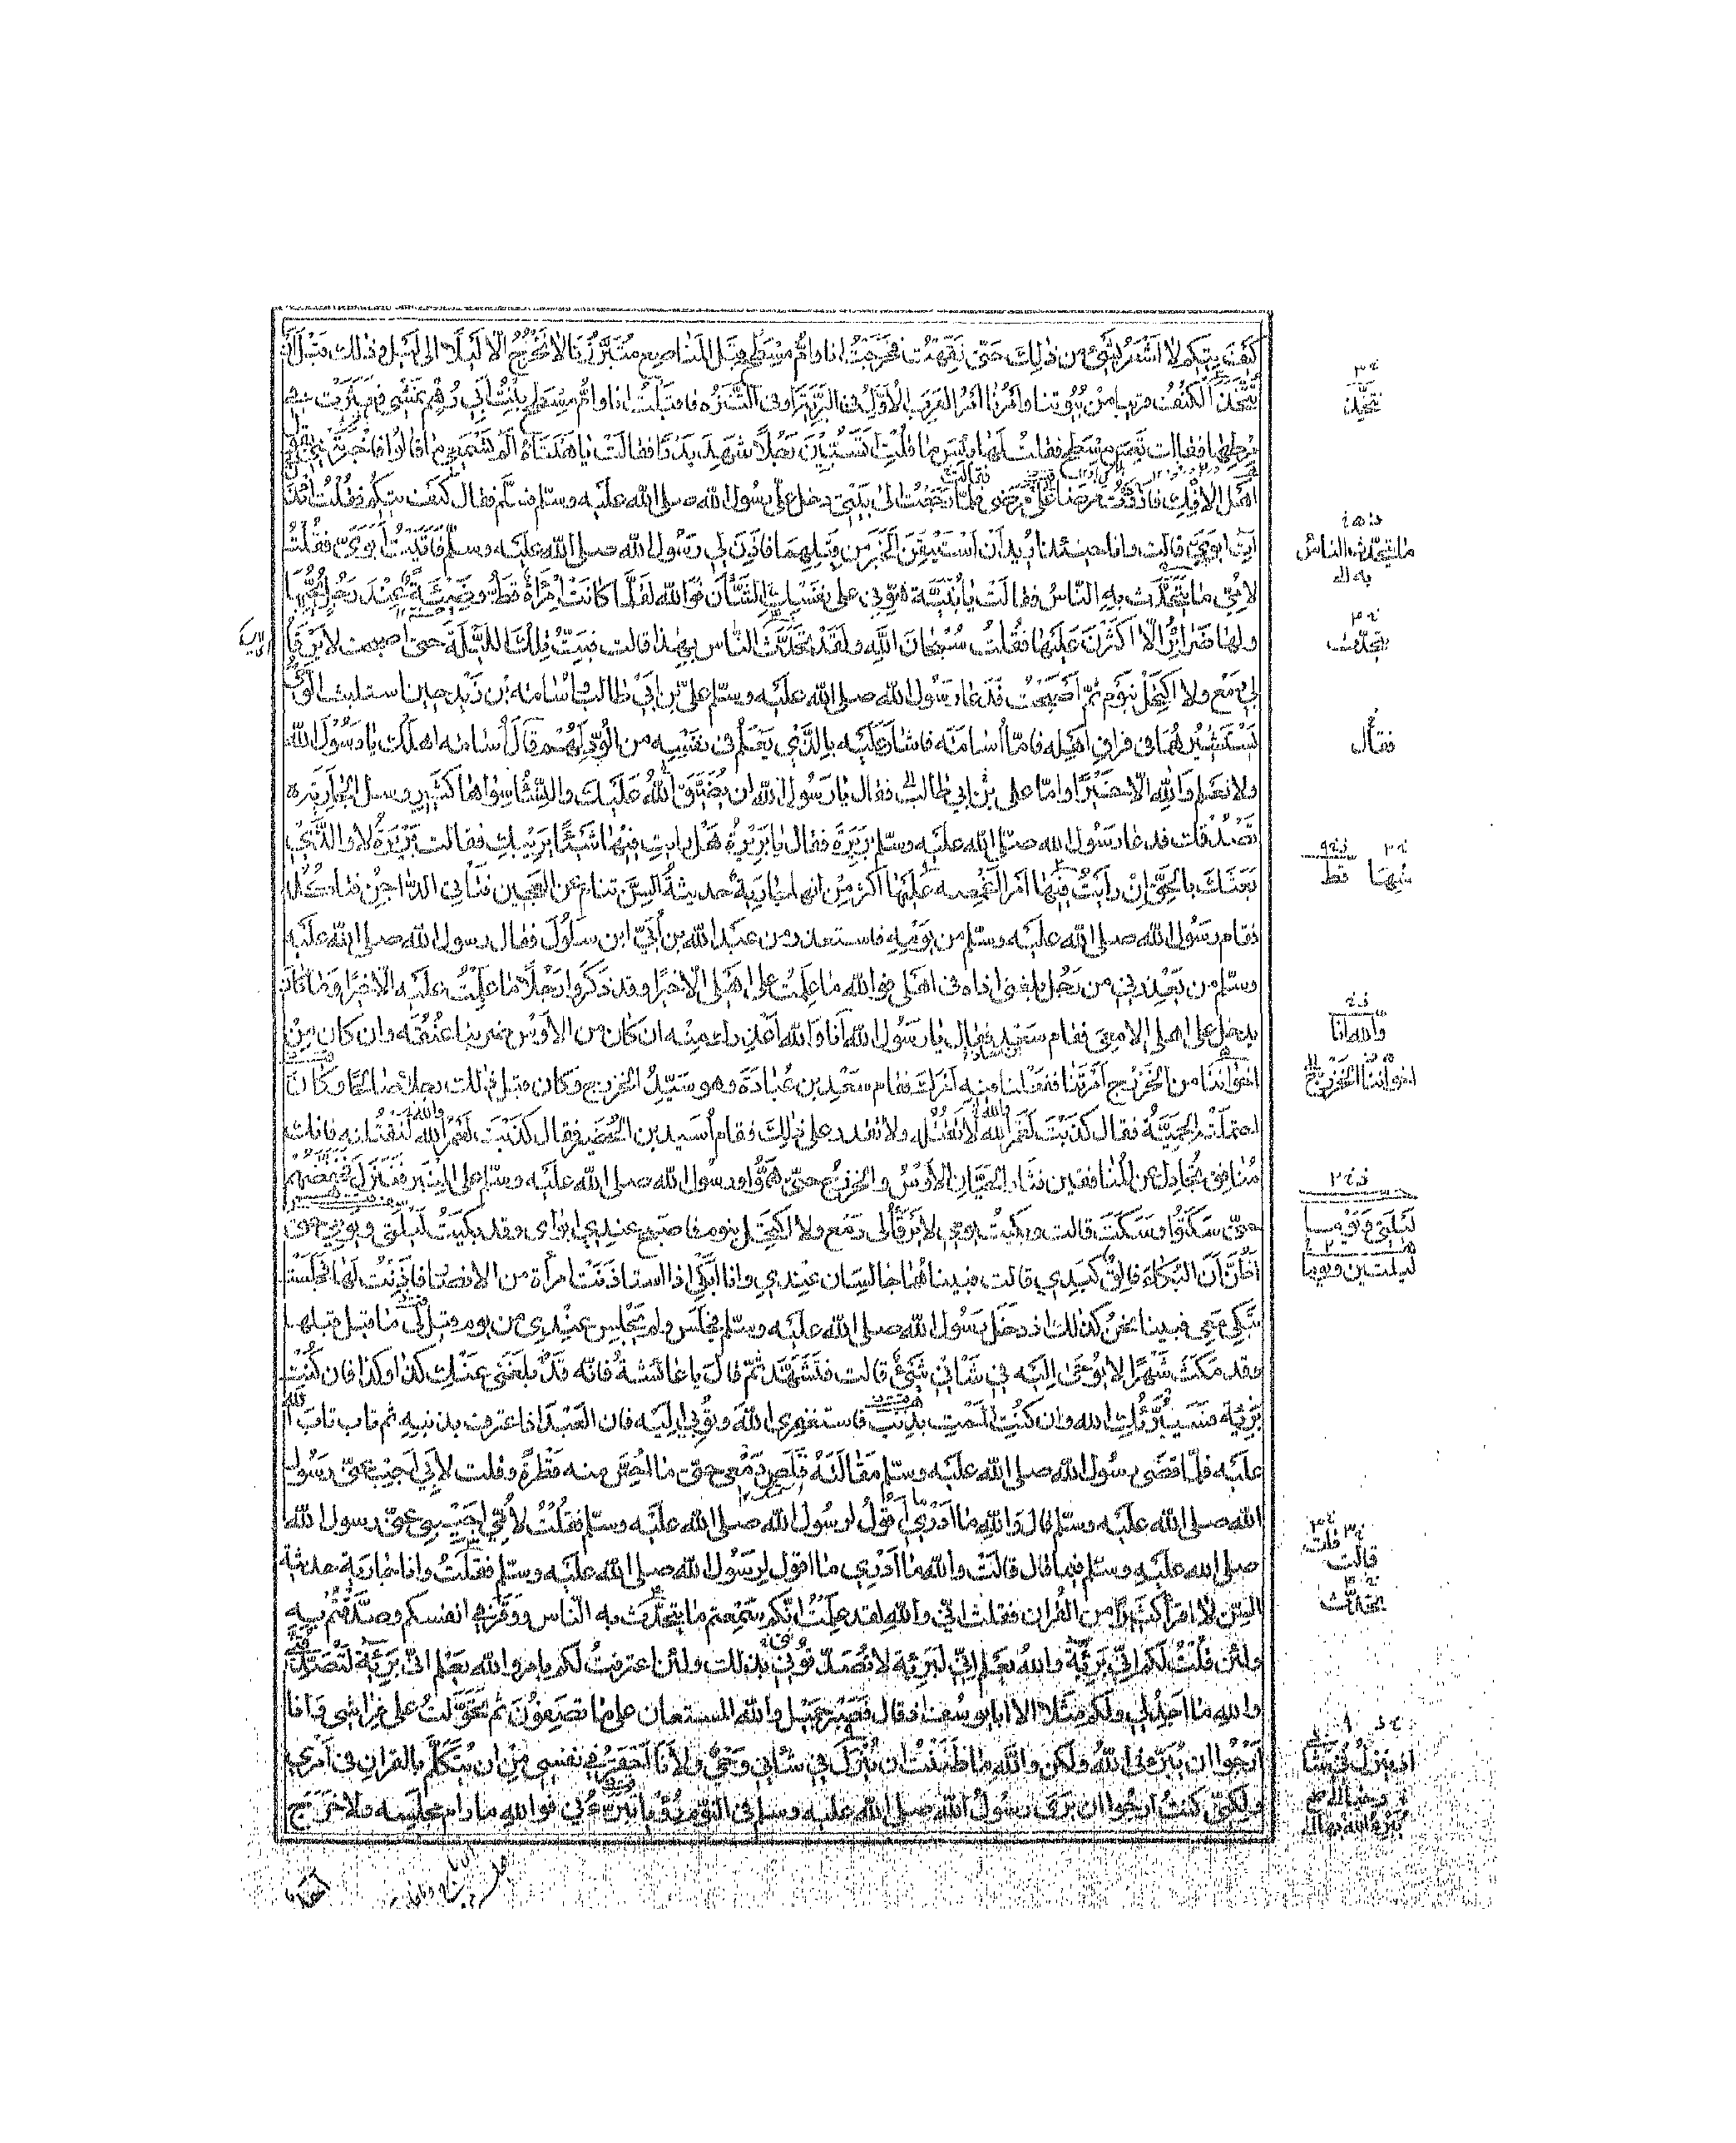 كَيْفَ تِيكُمْ لا أَشْعُرُ بِشَيْءٍ من ذلِكَ حَتّى نَقَهْتُ فَخَرَجْتُ انا وامُّ مِسْطَحٍ قِبَلَ المَنَاصِعِ مُتَبَرَّزُنَا لا نَخْرُجُ الّا لَيْلًا الى لَيْلٍ وذلك قَبْلَ أَنْ
نَتَّخِذَ الْكُنُفَ قريبا مِنْ بُيُوتنا وامْرُنَا امْرُ العَرَبِ الأُوَلِ في البَرِّيَّةِ او في التَّنَزُّه فاقبَلْتُ انا وامُّ مِسْطَحٍ بِنْتُ أَبِي رُهْمٍ نَمْشِي فعَثَرَتْ في
مِرْطِها فقالت تَعِسَ مِسْطَحٌ فقلت لَها بِئْسَ ما قُلْتِ اَتَسُبِّينَ رَجُلًا شَهِدَ بَدْرًا فقالَتْ يا هَنْتَاهْ الَمْ تَسْمَعِي ما قالُوا فاخْبَرَتْنِي بقول
اهْلِ الافْكِ فازْدَدْتُ مرضا عَلَى مَرَضِي فلمّا رَجَعْتُ الى بَيْتِي دخل عليّ رسُول الله صلى الله عليه وسلّم فسلّم فقال كَيْفَ تِيكُمْ فقُلْتُ ائْذَنْ
لي آتِ ابويَّ قالت وانا حينئذ اُرِيدُ اَنْ اَسْتَيْقِنَ الخَبَرَ من قِبَلِهِمَا فاذِنَ لي رَسُول الله صلى الله عليه وسلّم فَاَتَيْتُ اَبَوَيَّ فقُلْتُ
لاُمِّي ما يَتَحَدَّثُ بهِ النّاسُ فقالَتْ يا بُنَيَّة هَوِّني على نفسِكِ الشَّأْنَ فوَالله لقَلَّما كانت امْرَأَةٌ قَطُّ وَضِيئَةٌ عِنْدَ رَجُلٍ يُحِبُّها
ولها ضَرَائِرُ الّا اكثَرْنَ عَلَيْهَا فقُلْتُ سُبْحَانَ اللهِ ولَقَدْ تَحَدَّثَ النّاس بهذا قالت فبِتُّ تِلْكَ اللّيْلَةَ حتى اصبحت لا يَرْقَأُ
لي دمْع ولا اكتَحِلُ بنَوْمٍ ثمّ اَصْبَحْتُ فَدَعَا رَسُول الله صلى الله عليه وسلّم عليّ بن ابِي طالب واُسَامَة بْن زَيْد حين استلبث الوَحْيُ
يَسْتَشِيرُهُمَا في فراقِ اَهْلِه فامّا اُسَامَة فاشَارَ عَلَيْه بِالَّذِي يَعْلَمُ في نفسِه من الوُدِّ لَهُمْ فقالَ اُسامَة اهلك يا رَسُولَ الله
ولا نعلم وَاللهِ الّا خَيْرًا وامّا علي بن ابي طالب فقال يا رَسُول الله لن يُضَيِّقَ اللهُ عَلَيْكَ والنِّسَاءُ سِوَاها كَثِيرٌ وسل الجارية
تَصْدُقْكَ فدعا رَسُول الله صلّى الله عليه وسلّم بَرِيرَةَ فقال يا بَرِيرَةُ هَلْ رايتِ فيها شَيْئًا يَرِيبُكِ فقالت بَرِيرَةُ لا والَّذِي
بَعَثَكَ بالحَقِّ اِنْ رأَيْتُ مِنْها امْرًا اَغْمِصُه عَلَيْهَا اكثر مِنْ انها جارِيَة حديثةُ السِّنِّ تنام عن العَجِينِ فتاتي الدّاجِنُ فتاكُلُه
فقام رسُول الله صلى الله عليه وسلّم من يَوْمِه فاستعذر من عبد الله بن اُبَيّ ابن سَلُولَ فقال رسول الله صلى الله عليه
وسلّم من يَعْذِرني من رَجُلٍ بلغني اذاه في اهلي فوالله ما عَلِمْتُ على اهلي الّا خيرًا وقد ذكَرُوا رَجُلًا ما عَلِمْتُ عليه الا خيْرًا وما كانَ
يدخل على اهلي الّا معِي فقام سَعْدٌ فقال يا رَسُولَ الله اَنا وَالله اَعْذِرك منه ان كان من الاَوْس ضَربنا عُنُقَه وان كان مِنْ
اخْوَانِنَا من الخَزْرَج اَمَرْتَنا ففعَلْنا فيه اَمْرَكَ فقام سعْد بن عُبَادَةَ وهو سَيِّدُ الخزرج وكان قبل ذلك رجلا صالحا وكان
احتملَتْه الحَمِيَّةُ فقال كذَبْتَ لعَمْرُ الله لا تَقْتُلُه ولا تقدر على ذلِكَ فقام اُسَيد بن الحُضَير فقال كذَبْتَ لعَمْرُ الله لنَقْتُلَنّه فانك
مُنَافِقٌ تُجَادِلُ عن المُنَافقين فثَارَ الحَيَّانِ الاَوْسُ والخَزْرَجُ حتّى هَمُّوا ورسُول الله صلى الله عليه وسلّم على المِنْبَر فنَزَلَ فخَفَّضَهُمْ
حتى سَكَتُوا وسَكَتَ قالت وبكَيْتُ يومي لا يَرْقَأُ لي دَمْع ولا اكتَحِل بنوم فاصبح عِنْدِي ابَوَاي وقد بكَيْتُ لَيْلَتي ويَوْمِي حتى
اَظُنُّ اَنَّ البُكَاءَ فَالِقٌ كَبِدِي قالت فبينا هُمَا جالسان عِنْدِي وانا اَبْكِي اذ استاذَنَتْ امرأة من الانصار فاَذِنْتُ لها فجَلَسَتْ
تَبْكِي مَعِي فبينا نحنُ كذلك اذ دَخَلَ رَسُول الله صلى الله عليه وسلّم فجَلَسَ ولم يَجْلِس عِنْدِي من يوم قيل لي ما قيل قبلها
وقد مَكَثَ شَهْرًا لا يُوحَى اِلَيْه في شَأْنِي شَيْءٌ قالت فتَشَهَّدَ ثُمّ قالَ يا عائشةُ فانّه قَدْ بلَغَنِي عَنْكِ كذا وكذا فان كُنْتِ
بَرِيَّة فسَيُبَرِّئُكِ الله وان كُنْتِ اَلْمَمْتِ بِذَنْبٍ فاستغفِري اللهَ وتُوبِي اِلَيْه فان العَبْدَ اذا اعترف بذنبِه ثم تاب تابَ اللهُ
عليه فلمّا قضَى رسُول الله صلى الله عليه وسلّم مَقَالَتَهُ قَلَصَ دَمْعِي حتى ما اُحِسُّ منه قَطْرَةً وقلت لاَبِي اَجِبْ عنّي رَسُولَ
الله صلى الله عليه وسلّم قال وَاللهِ ما اَدْرِي ما اَقُولُ لرسُول الله صلى الله عليه وسلّم فقُلْتُ لاُمِّي اَجِيبِي عنّي رسول الله
صلى الله عليه وسلّم فيما قال قالَتْ والله ما اَدْرِي ما اقول لِرَسُول الله صلى الله عليه وسلّم فقلْتُ وانا جارية حديثة
السِّنّ لا اقرأ كثيرًا من القُرآن فقلت انّي واللهِ لقد عَلِمْتُ انّكم سَمِعْتم ما يتحَدَّث به النّاس ووَقَرَ في انفسكم وصَدَّقْتُمْ بِه
ولئن قُلْتُ لَكم انّي بَرِيَّةٌ واللهُ يعْلم انّي لبَرِيَّة لا تُصَدّقُونِي بذلك ولئن اعترفتُ لكم بامر والله يَعْلم انّي بَرِيَّة لَتُصَدِّقُنِّي
والله ما اجِدُ لِي ولَكم مَثَلًا الّا ابا يوسُفَ اذ قال فَصَبْرٌ جَمِيلٌ والله المستعان على ما تصِفُونَ ثم تَحَوَّلْتُ على فِراشِي وانا
اَرْجُوا ان يُبَرِّئَنِي اللهُ ولكن واللهِ ما ظَنَنْتُ ان يُنْزِلَ في شَأْنِي وَحْيًا ولاَنَا اَحْقَرُ في نفسِي مِنْ ان يُتَكَلَّمَ بالقرآنِ في اَمْرِي
ولَكِنِّي كُنْتُ ارجُوا ان يَرَى رسُولُ الله صلى الله عليه وسلم في النَّوْمِ رُؤْيَا تُبَرِّئُنِي فوَاللهِ ما رام مجلِسه ولا خَرَج
نتَّخِذ
ما يتحدّث الناس
به
يتحدّث
فقال
فيها قط
والله انا
اخواننا الخزرج
لَيْلَتِي وَيَوْمِي
ليلتين ويوما
قلت
قالت
يتحدّث
ان ينزل في شا